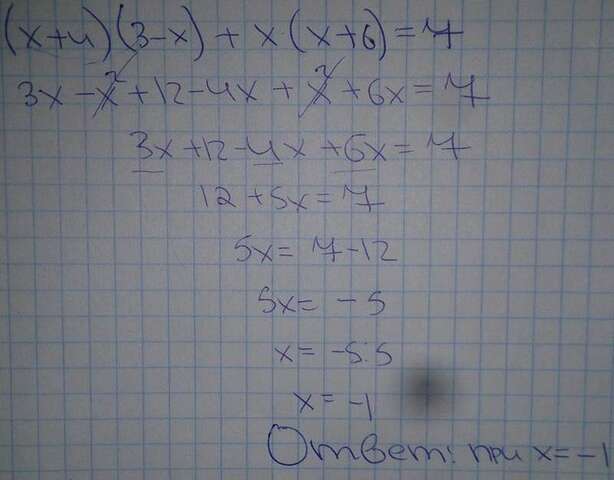 (x+4)(3-x)+x(x+6)=7
3x-x²+12-4x+x²+6x=7
3x+12-4x+6x=7
12+5x=7
5x=7-12
5x=-5
x=-5:5
x=-1
Ответ: при x=-1